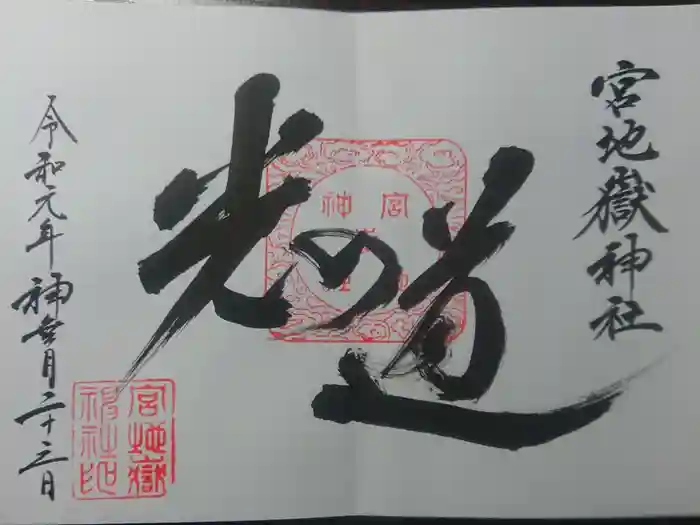 宮地嶽神社
光の道
令和元年神無月二十三日
宮地嶽
神社印